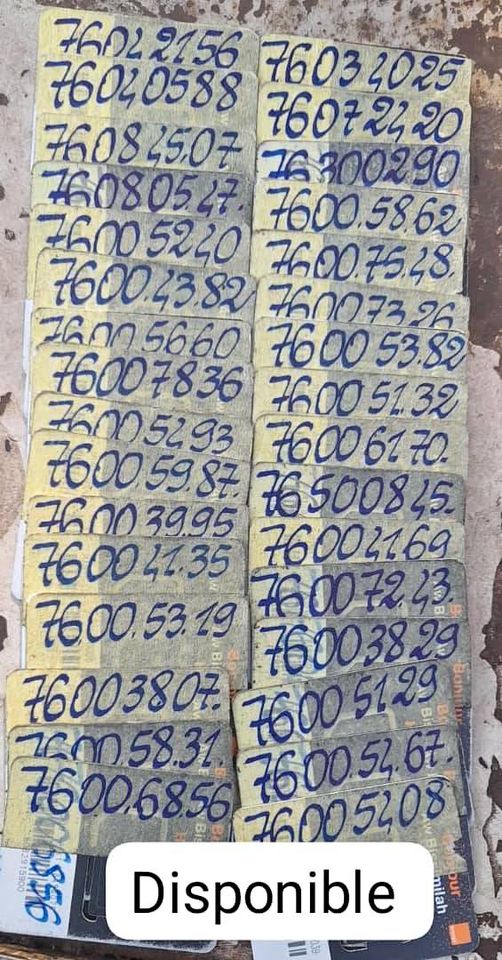 76042156
76040588
760845.07
760805.47.
76005240
7600.43.82
76005660
76007836
76005493
760059.87.
760039.95
760041.35
7600.53.19
76003807.
7600.58.31.
7600.68.56
76034025
76072420
76300290
7600.58.62
7600.75.48.
76007326
76005382
76005132
76006170.
76500845.
76004169
760072.43.
76003829
76005129
7600.54.67.
76005408
Disponible